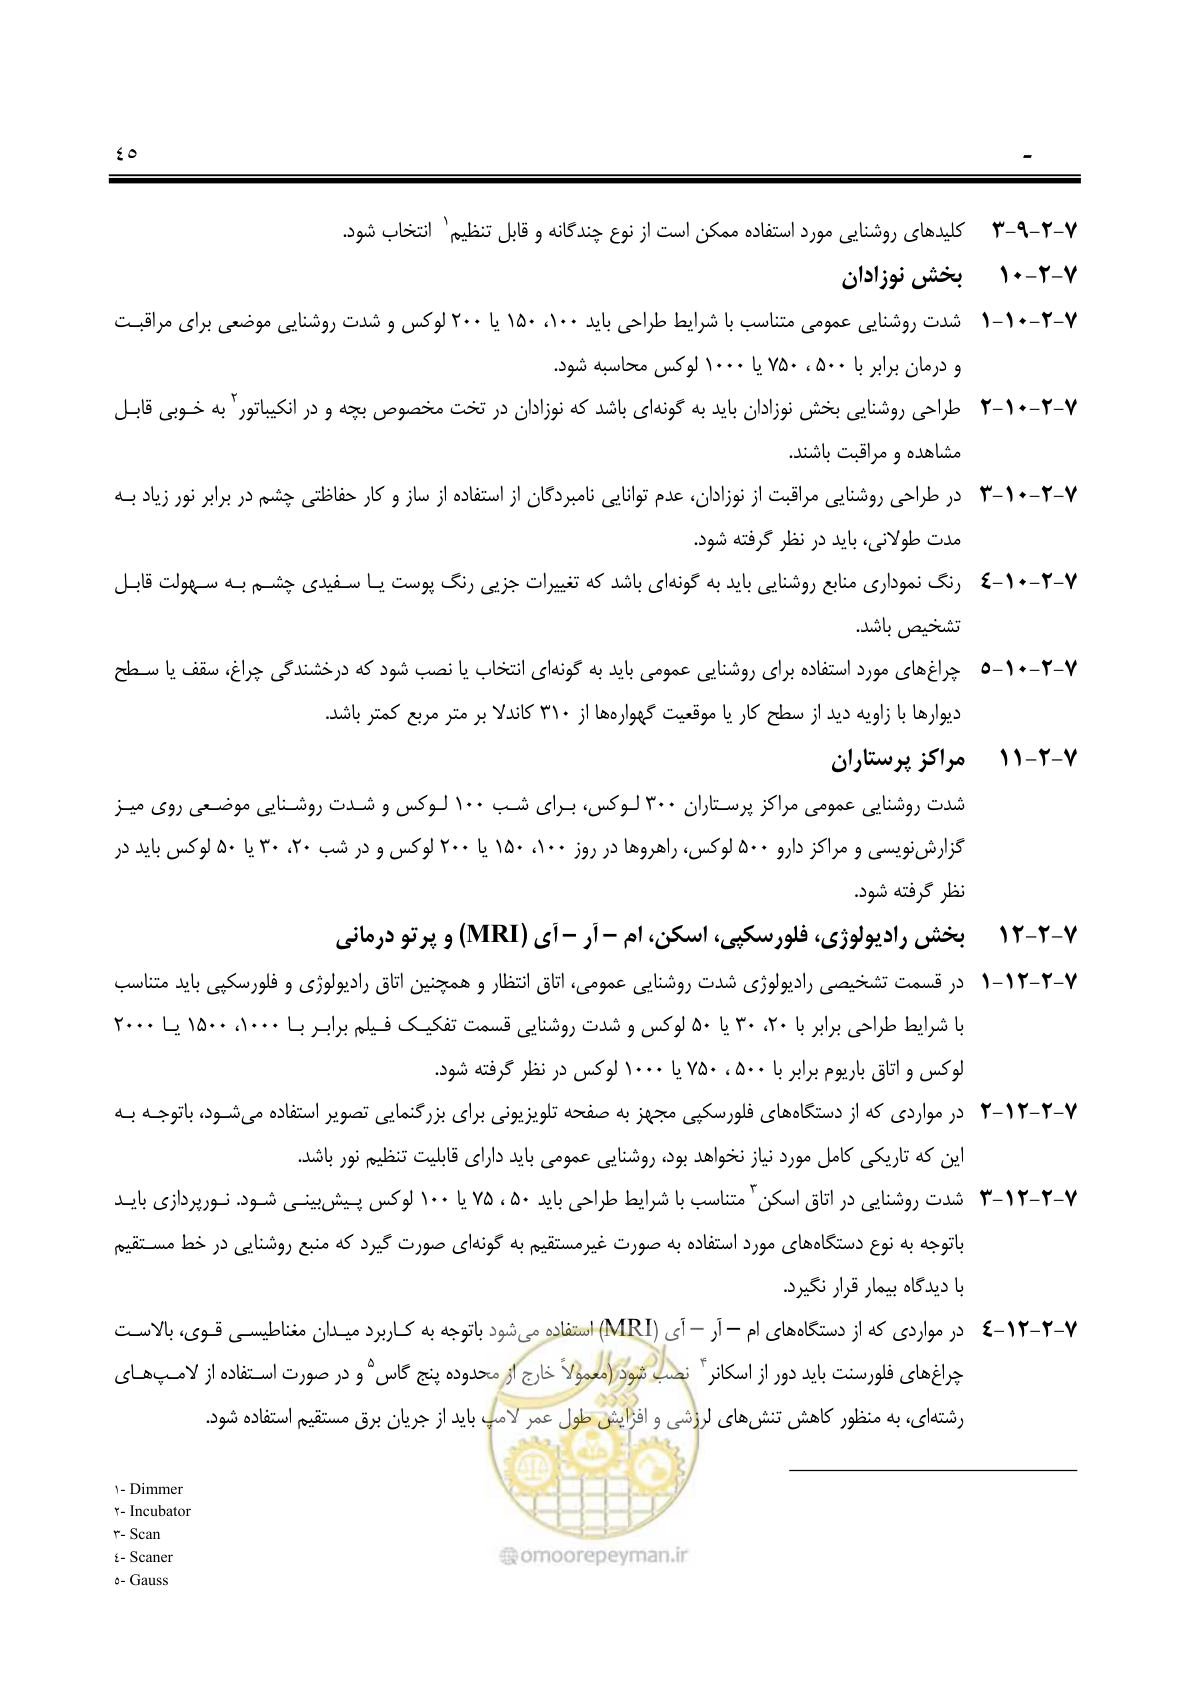 ٤٥ -
۷-۲-۹-۳ کلیدهای روشنایی مورد استفاده ممکن است از نوع چندگانه و قابل تنظیم۱ انتخاب شود.
۷-۲-۱۰ بخش نوزادان
۷-۲-۱۰-۱ شدت روشنایی عمومی متناسب با شرایط طراحی باید ۱۰۰، ۱۵۰ یا ۲۰۰ لوکس و شدت روشنایی موضعی برای مراقبت
و درمان برابر با ۵۰۰ ، ۷۵۰ یا ۱۰۰۰ لوکس محاسبه شود.
۷-۲-۱۰-۲ طراحی روشنایی بخش نوزادان باید به گونه‌ای باشد که نوزادان در تخت مخصوص بچه و در انکیباتور۲ به خوبی قابل
مشاهده و مراقبت باشند.
۷-۲-۱۰-۳ در طراحی روشنایی مراقبت از نوزادان، عدم توانایی نامبردگان از استفاده از ساز و کار حفاظتی چشم در برابر نور زیاد به
مدت طولانی، باید در نظر گرفته شود.
۷-۲-۱۰-٤ رنگ نموداری منابع روشنایی باید به گونه‌ای باشد که تغییرات جزیی رنگ پوست یا سفیدی چشم به سهولت قابل
تشخیص باشد.
۷-۲-۱۰-٥ چراغ‌های مورد استفاده برای روشنایی عمومی باید به گونه‌ای انتخاب یا نصب شود که درخشندگی چراغ، سقف یا سطح
دیوارها با زاویه دید از سطح کار یا موقعیت گهواره‌ها از ۳۱۰ کاندلا بر متر مربع کمتر باشد.
۷-۲-۱۱ مراکز پرستاران
شدت روشنایی عمومی مراکز پرستاران ۳۰۰ لوکس، برای شب ۱۰۰ لوکس و شدت روشنایی موضعی روی میز
گزارش‌نویسی و مراکز دارو ۵۰۰ لوکس، راهروها در روز ۱۰۰، ۱۵۰ یا ۲۰۰ لوکس و در شب ۲۰، ۳۰ یا ۵۰ لوکس باید در
نظر گرفته شود.
۷-۲-۱۲ بخش رادیولوژی، فلورسکپی، اسکن، ام – آر – آی (MRI) و پرتو درمانی
۷-۲-۱۲-۱ در قسمت تشخیصی رادیولوژی شدت روشنایی عمومی، اتاق انتظار و همچنین اتاق رادیولوژی و فلورسکپی باید متناسب
با شرایط طراحی برابر با ۲۰، ۳۰ یا ۵۰ لوکس و شدت روشنایی قسمت تفکیک فیلم برابر با ۱۰۰۰، ۱۵۰۰ یا ۲۰۰۰
لوکس و اتاق باریوم برابر با ۵۰۰ ، ۷۵۰ یا ۱۰۰۰ لوکس در نظر گرفته شود.
۷-۲-۱۲-۲ در مواردی که از دستگاه‌های فلورسکپی مجهز به صفحه تلویزیونی برای بزرگنمایی تصویر استفاده می‌شود، باتوجه به
این که تاریکی کامل مورد نیاز نخواهد بود، روشنایی عمومی باید دارای قابلیت تنظیم نور باشد.
۷-۲-۱۲-۳ شدت روشنایی در اتاق اسکن۳ متناسب با شرایط طراحی باید ۵۰ ، ۷۵ یا ۱۰۰ لوکس پیش‌بینی شود. نورپردازی باید
باتوجه به نوع دستگاه‌های مورد استفاده به صورت غیرمستقیم به گونه‌ای صورت گیرد که منبع روشنایی در خط مستقیم
با دیدگاه بیمار قرار نگیرد.
۷-۲-۱۲-٤ در مواردی که از دستگاه‌های ام – آر – آی (MRI) استفاده می‌شود باتوجه به کاربرد میدان مغناطیسی قوی، بالاست
چراغ‌های فلورسنت باید دور از اسکانر۴ نصب شود (معمولاً خارج از محدوده پنج گاس۵ و در صورت استفاده از لامپ‌های
رشته‌ای، به منظور کاهش تنش‌های لرزشی و افزایش طول عمر لامپ باید از جریان برق مستقیم استفاده شود.
۱- Dimmer
۲- Incubator
۳- Scan
٤- Scaner
٥- Gauss
امور پیمان
@omoorepeyman.ir